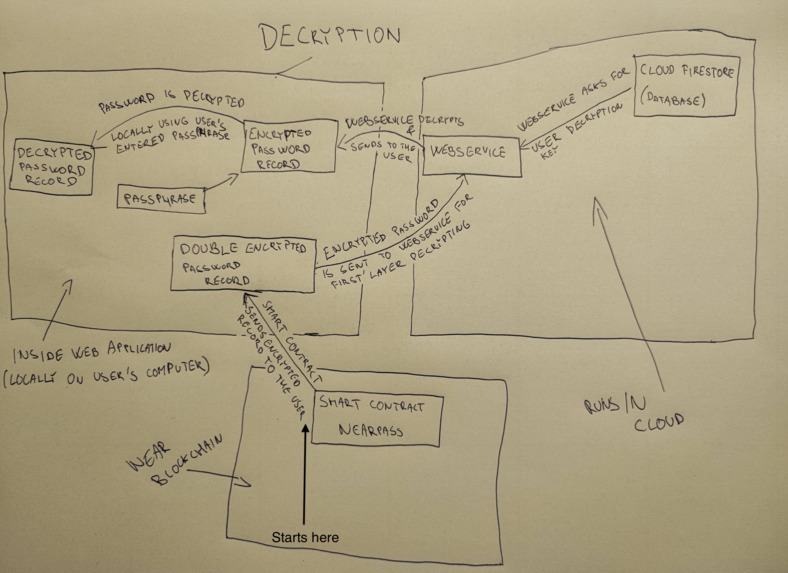 DECRYPTION
PASSWORD IS DECRYPTED
LOCALLY USING USER'S
ENTERED PASSPHRASE
DECRYPTED
PASSWORD
RECORD
ENCRYPTED
PASSWORD
RECORD
PASSPHRASE
WEBSERVICE DECRYPTS
&
SENDS TO THE
USER
WEBSERVICE
WEBSERVICE ASKS FOR
USER DECRYPTION
KEY
CLOUD FIRESTORE
(DATABASE)
DOUBLE ENCRYPTED
PASSWORD
RECORD
ENCRYPTED PASSWORD
IS SENT TO WEBSERVICE FOR
FIRST LAYER DECRYPTING
SMART CONTRACT
SENDS ENCRYPTED
RECORD TO THE USER
INSIDE WEB APPLICATION
(LOCALLY ON USER'S COMPUTER)
SMART CONTRACT
NEARPASS
NEAR
BLOCKCHAIN
RUNS IN
CLOUD
Starts here